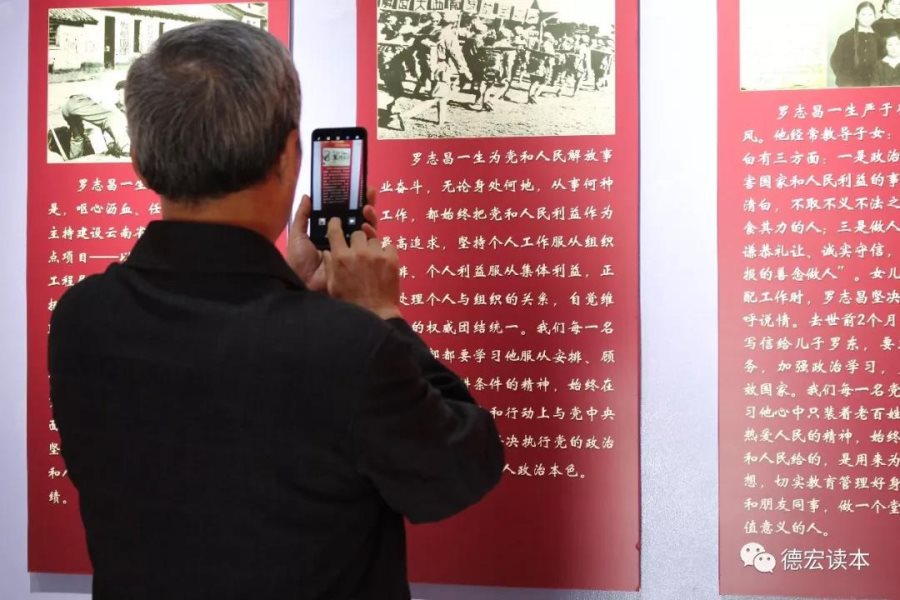 罗志昌一生
是，呕心沥血、任
主持建设云南省
点项目——
工程
和
绩。
罗志昌一生为党和人民解放事
业奋斗，无论身处何地，从事何种
工作，都始终把党和人民利益作为
最高追求，坚持个人工作服从组织
排、个人利益服从集体利益，正
处理个人与组织的关系，自觉维
的权威团结统一。我们每一名
都要学习他服从安排、顾
条件的精神，始终在
和行动上与党中央
决执行党的政治
人政治本色。
罗志昌一生严于
风。他经常教导子女：
白有三方面：一是政治
害国家和人民利益的事
清白，不取不义不法之
食其力的人；三是做人
谦恭礼让、诚实守信，
报的善念做人”。女儿
配工作时，罗志昌坚决
呼说情。去世前2个月
写信给儿子罗东，要
务，加强政治学习，
效国家。我们每一名党
习他心中只装着老百姓
热爱人民的精神，始终
和人民给的，是用来为
想，切实教育管理好身
和朋友同事，做一个堂
值意义的人。
德宏读本